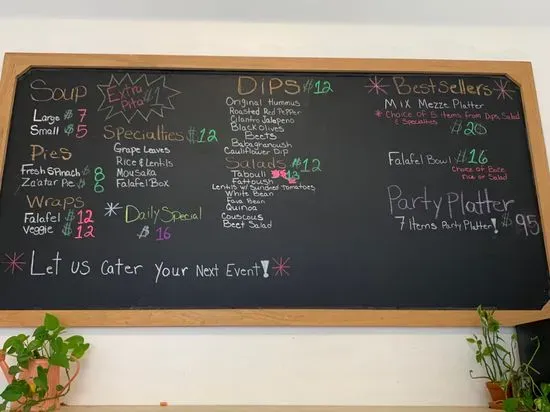 Soup
Large $7
Small $5
Extra Pita $1
Pies
Fresh Spinach $8
Za'atar Pie $6
Wraps
Falafel $12
Veggie $12
Specialties $12
Grape Leaves
Rice & Lentils
Mousaka
Falafel Box
* Daily Special
$16
DIPS $12
Original Hummus
Roasted Red Pepper
Cilantro Jalapeno
Black Olives
Beets
Babaghanoush
Cauliflower Dip
Salads $12
Tabouli $13
Fattoush
Lentils w/ Sundried Tomatoes
White Bean
Fava Bean
Quinoa
Couscous
Beet Salad
* Best Sellers *
Mix Mezze Platter
* Choice of 5 items from Dips, Salad
& Specialties
$20
Falafel Bowl $16
Choice of Base
rice or Salad
Party Platter
7 Items Party Platter! $95
* Let us Cater Your Next Event! *